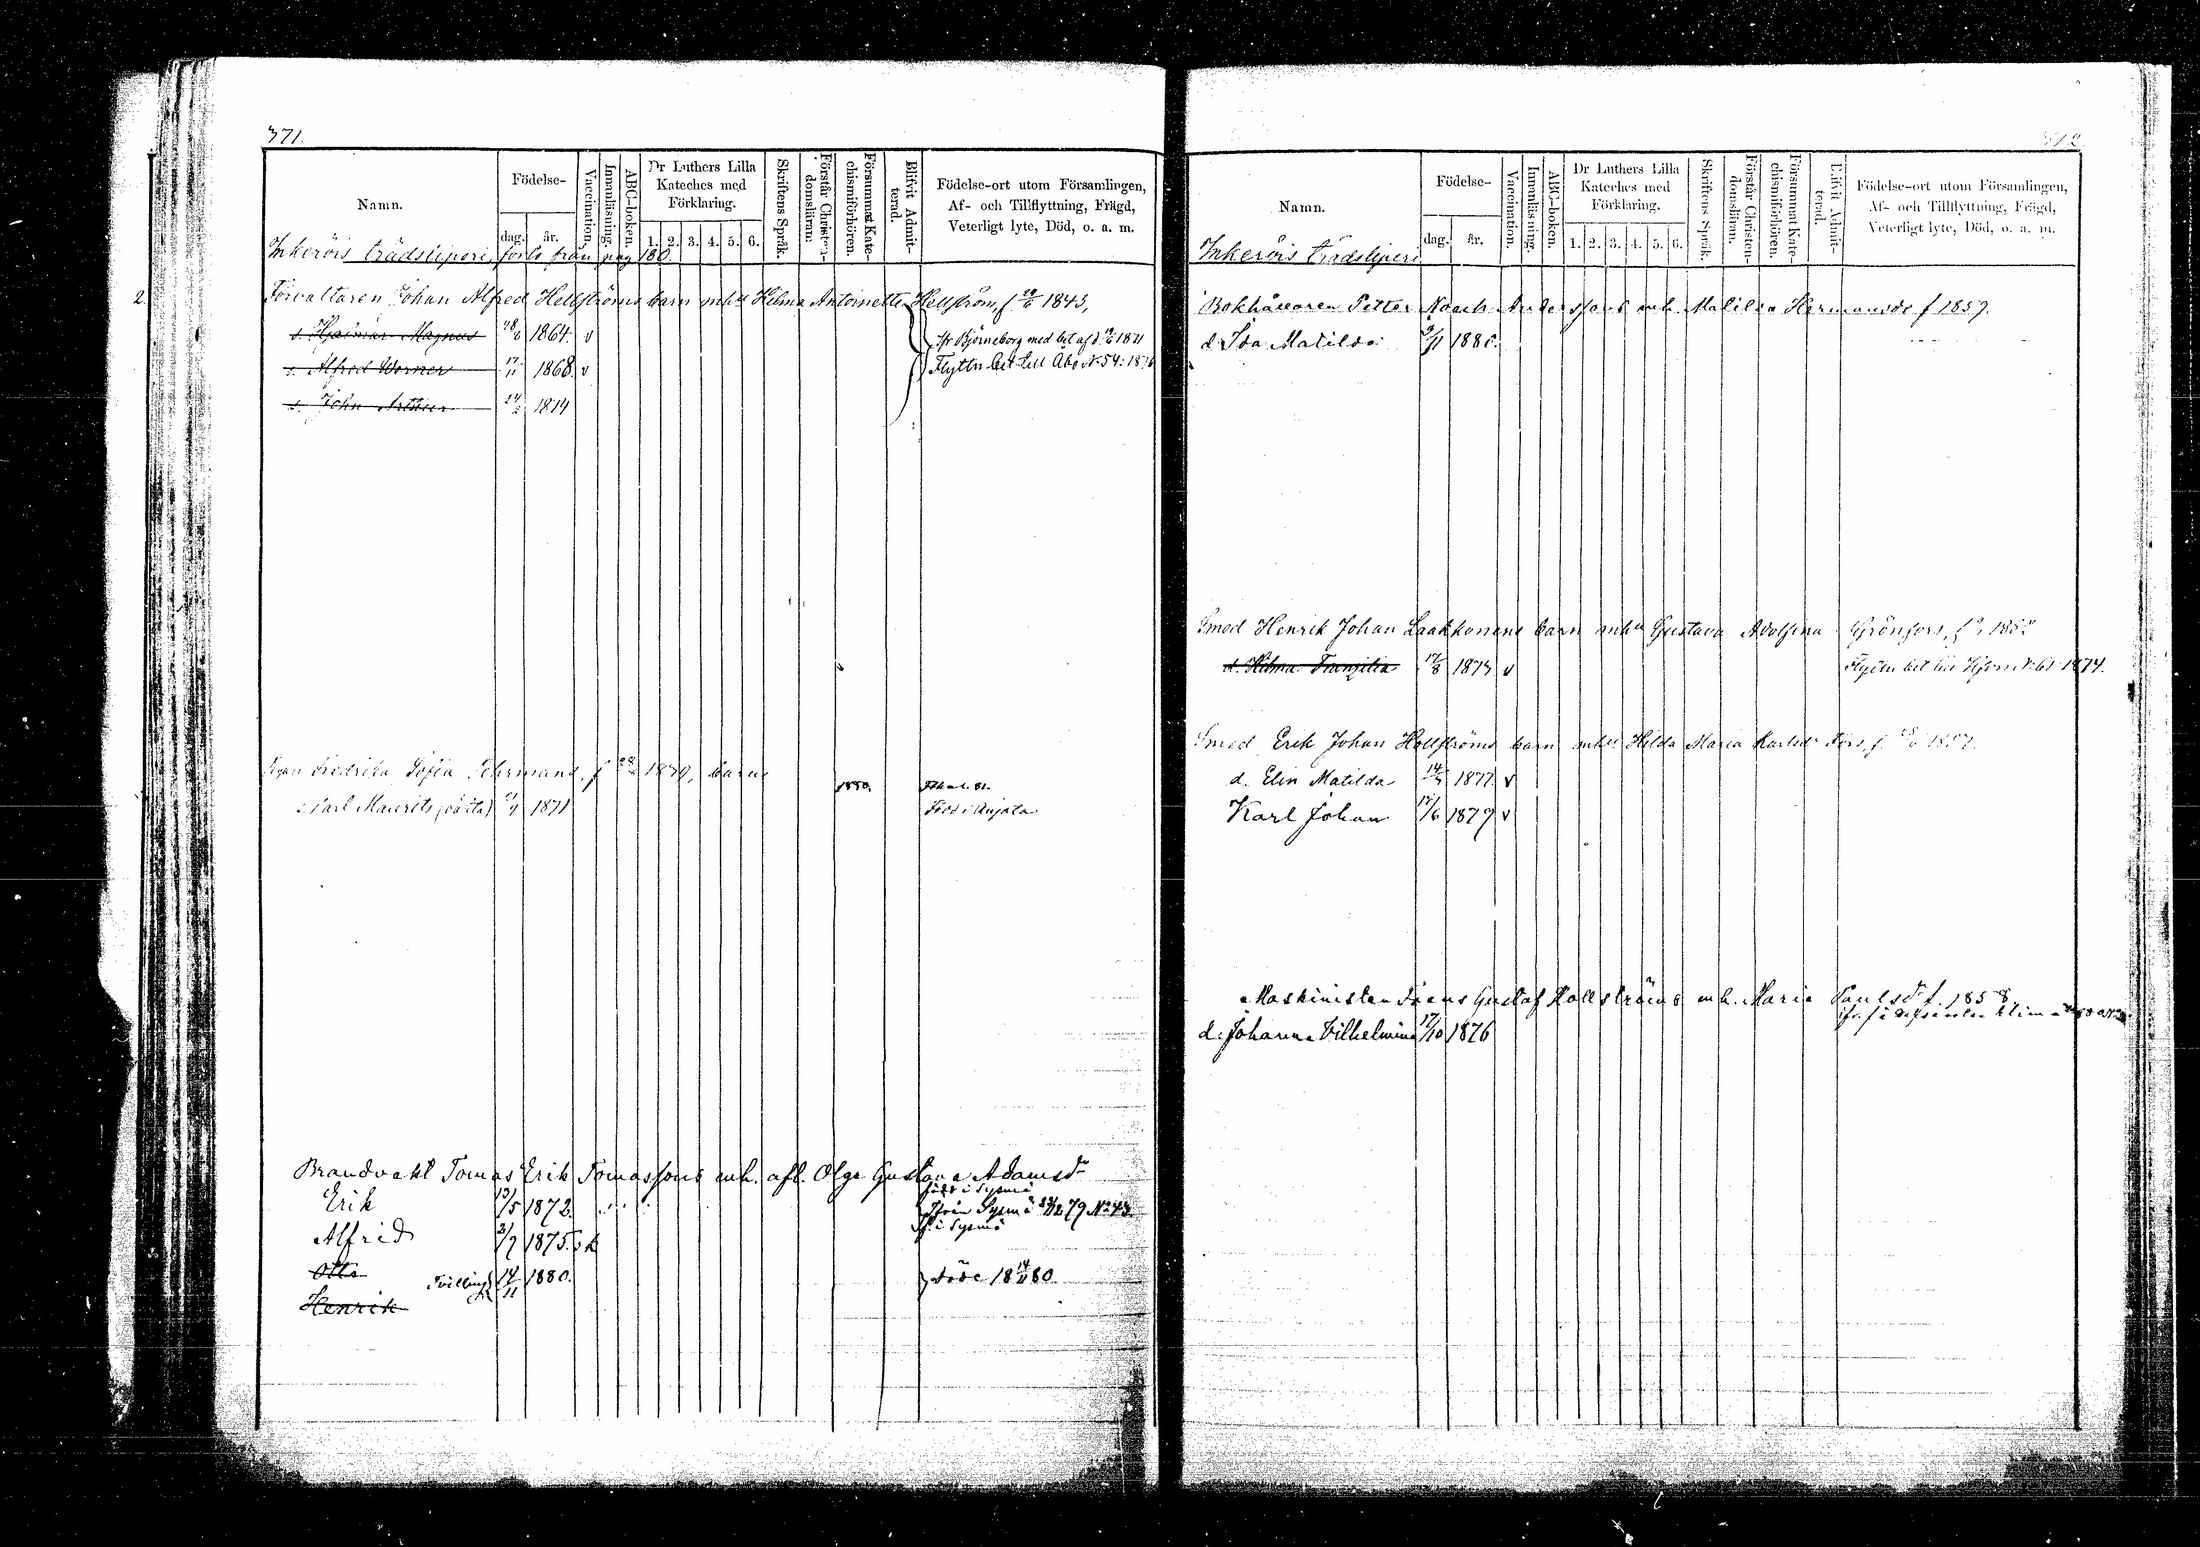 371.
Namn.
Födelse-
dag.
år.
Vaccination.
Innanläsning.
ABC-boken.
Dr Luthers Lilla
Kateches med
Förklaring.
1. 2. 3. 4. 5. 6.
Skriftens Språk.
Förstår Christen-
domsläran:
Försummat Kate-
chismiförhören.
Blifvit Admit-
terad.
Födelse-ort utom Församlingen,
Af- och Tillflyttning, Frägd,
Veterligt lyte, Död, o. a. m.
Inkerois trädsliperi, forts från pag 180.
2.
Förvaltaren Johan Alfred Hellströms barn mh Hilma Antoinette Hellström, f. 1843,
s. Hjalmar Magnus 1864. v
fr Björneborg med bet af d. 1871
s. Alfred Werner 17/11 1868. v
Flyttn bet till Åbo N 54: 1876
s. John 24/2 1874
Fredrika Sofia Fehrmans, f 1879, barn
1880.
Karl Maurits 1871
Född i Anjala
Brandvakt Tomas Erik Tomassons enh. afl. Olga Gustava Adamsdr
född i Sysmä
Erik 13/5 1872.
Ifrån Sysmä 79 No 43.
Alfrid 2/7 1875.
f. i Sysmä
Otto Tvilling 14/11 1880.
döde 18 14/11 80.
Henrik
Namn.
Födelse-
dag.
år.
Vaccination.
Innanläsning.
ABC-boken.
Dr Luthers Lilla
Kateches med
Förklaring.
1. 2. 3. 4. 5. 6.
Skriftens Språk.
Förstår Christen-
domsläran:
Försummat Kate-
chismiförhören.
Blifvit Admit-
terad.
Födelse-ort utom Församlingen,
Af- och Tillflyttning, Frägd,
Veterligt lyte, Död, o. a. m.
Inkerois trädsliperi
Bokhållaren Petter Noach Anderssons mh. Matilda Hermansdr f 1859.
d. Ida Matilda 9/11 1880.
Smed Henrik Johan Laakkonens barn mh Gustava Adolfina Grönfors, f
d. Hilma 17/8 1873 v
Flyttn bet till N 61 1874.
Smed Erik Johan Hellströms barn mh Hilda Maria Karlsdr Fors, f. 1857.
d. Elin Matilda 1877. v
Karl Johan 15/6 1879 v
Maskinisten Frans Gustaf Hellströms mh. Maria Paulsdr f. 1858
d. Johanna Vilhelmina 17/10 1876